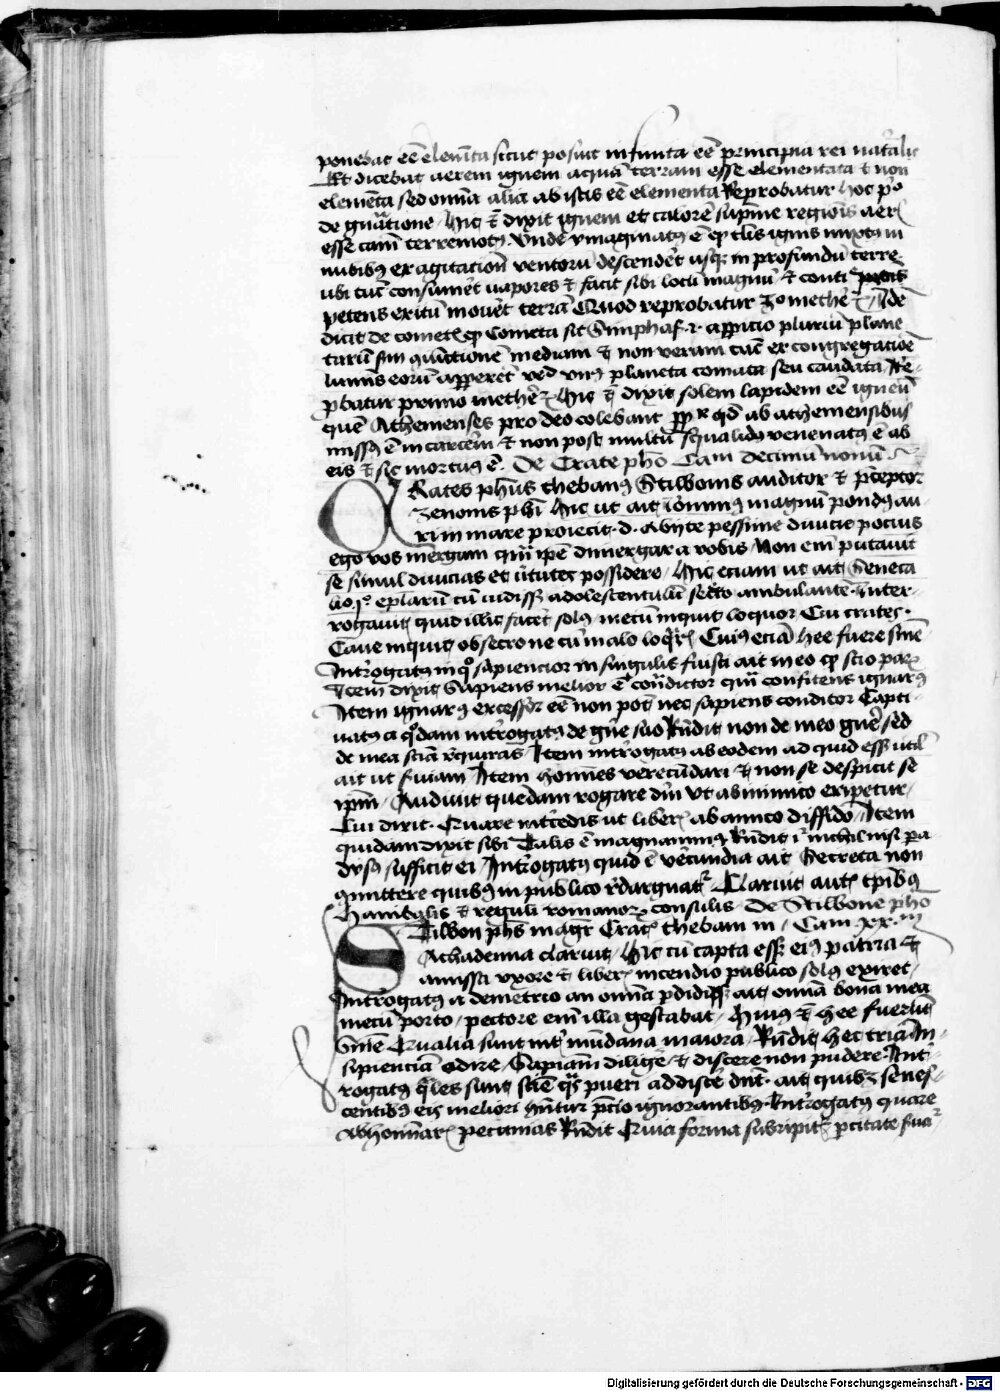 ponebat eē elemēta sicut posuit infinita eē principia rei naturalis
Et dicebat aerem ignem acquā terram esse elementata et non
elemēta sed omnia alia ab istis eē elementa Reprobatur hoc pͦ
de gnuatione Hic et dixit ignem et calorē supmē regionis aeris
esse causam terremotus Unde ymaginatus ē qp talis ignis mixtus in
nubibus ex agitatione ventorum descenderet usque in profundū terre
ubi tuc consumeret vapores et facit sibi locū magnū et conti
petens exitū mouet terrā Quod reprobatur 2o metheororum Idē
dicit de cometis qp Cometa sit Simphasis i. aspicio pluriū plane
tarū secundum coniunctionē mediam et non veram cuius ex congregatioē
luminis eorū apperet unus planeta comata seu caudata Re
probatur primo metheororum Hic et dixit solem lapidem eē igneū
quē Athenienses pro deo colebant propter quod ab atheniensibus
missus ē in carcerem et non post multū squalidus venenatus ē ab
eis et sic mortuus ē. De Crate pho Cam decimū nonū
CRates phūs thebanus Stilbonis auditor et preceptor
Zenonis phi Hic ut ait Jeronimus magnū pondus au
ri in mare proiecit d. Abijte pessime diuicie pocius
ego vos mergam quam ipse dimergar a vobis Non enim putauit
se simul diuicias et virtutes possidere Hic eciam ut ait Seneca
lio. 1o eplarū cū uidisset adolescentulū secreto ambulantē Inter
rogauit quid illic faceret solus mecū inquit loquor Cui crates
Caue inquit obsecro ne cū malo loquaris Cuius eciā hee fuere snīe
Introgatus in quo sapiencior in singulis fuisti ait in eo qp scio parum
Item dixit Sapiens melior ē conditor quam confitens ignarus
Item ignarus excessor eē non potest nec sapiens conditor Capti
uatus a quodam introgatus de genere suo Rndit non de meo genere sed
de mea scia requiras Item introgatus ab eodem ad quid esset utilis
ait ut fuiam Item homines verecundari et non se despicit se
ipm Audiuit quendam rogare dīm ut ab inimico eriperetur
Cui dixit. Quare intcedis ut liberer ab amico diffido Item
quidam dixit sibi Talis ē magnanimus Rndit nichil nisi pa
sufficit ei Introgatus quid ē verecundia ait Secreta non
committere quibus in publico redarguatur Claruit autem tpibus
Hanibalis et reguli romanorum consulis De Stilbone pho
STilbon phs magister Cratis thebani in Cam XX m
Achademia claruit Hic cū capta esset eius patria et
amissa uxore et liberis incendio publico solus exiret
Introgatus a demetrio an omnia perdidisset ait omnia bona mea
mecū porto pectore enim illa gestabat Huius et hee fuerūt
Snīe Qualia sunt inter mundana maiora Rndit hec tria In
sipienciā odire Sapiam diligere et discere non pudere Int
rogatus quales sunt scīē quas pueri addiscere debent ait quibus senes
centibus eis meliori habentur precio ignorantibus Introgatus quare
Abhominaris pecunias Rndit Quia forma surripitur parcitate
Digitalisierung gefördert durch die Deutsche Forschungsgemeinschaft - DFG